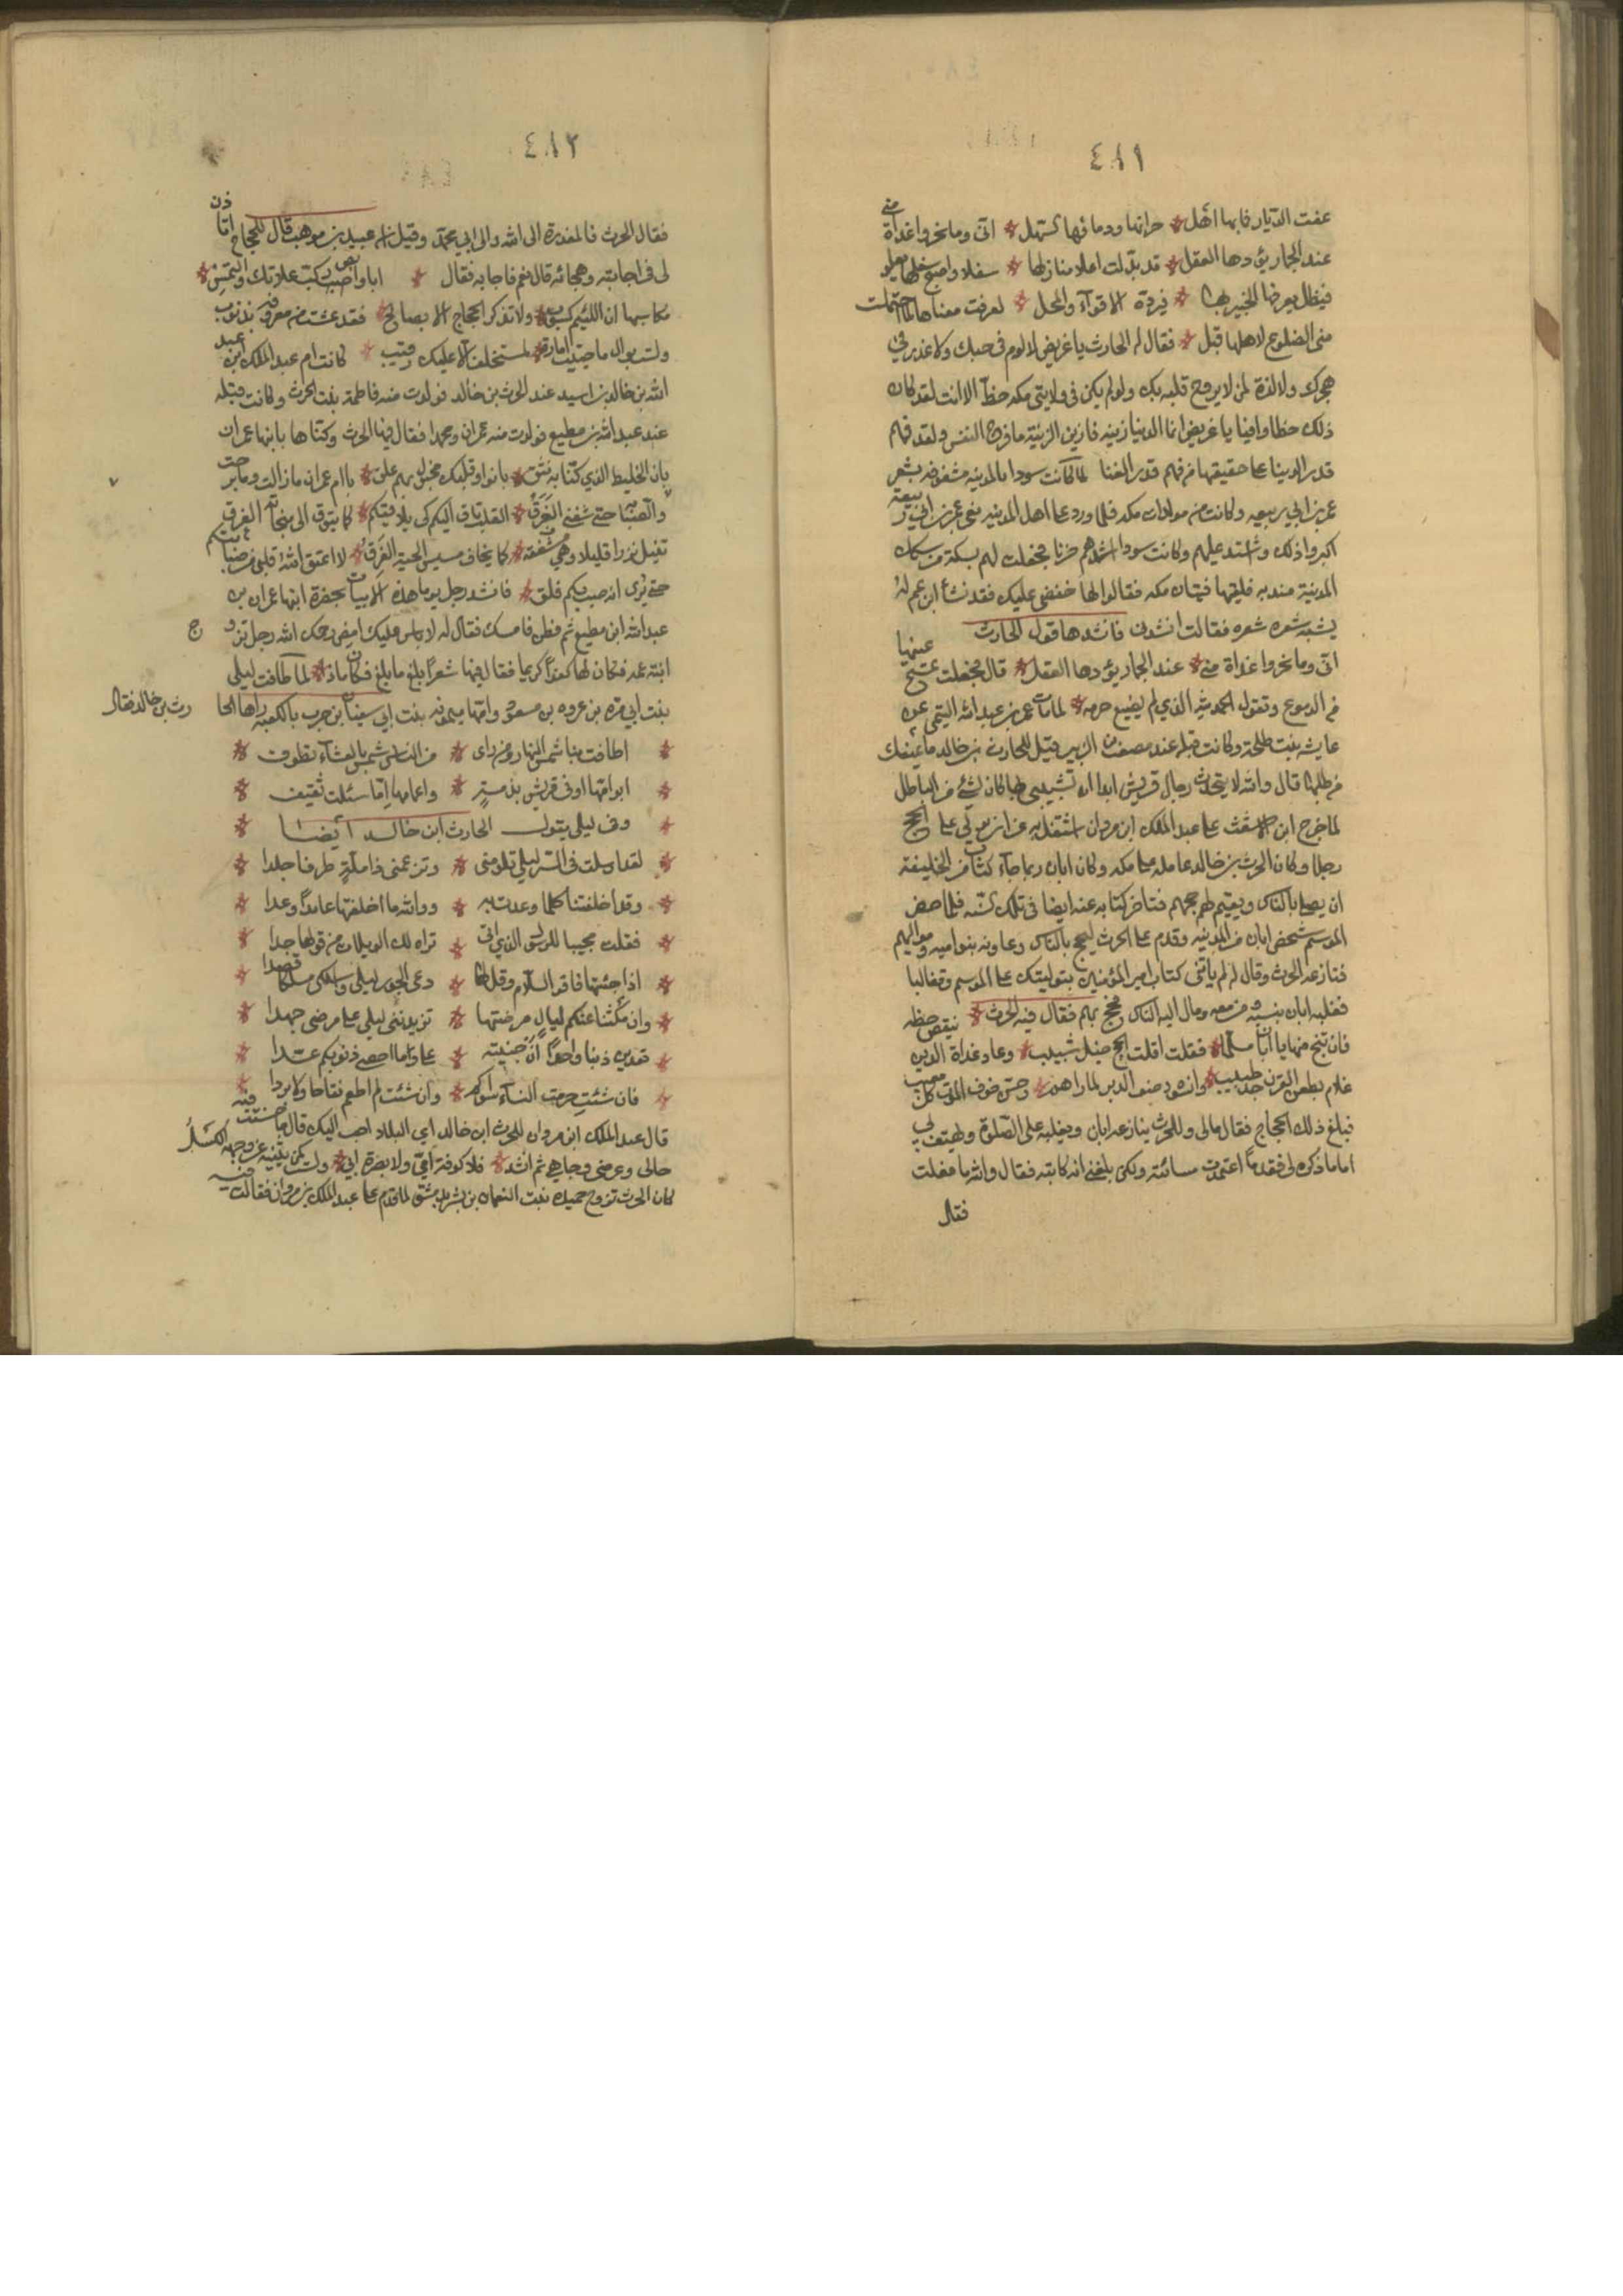 ٤٨١
عفت الديار فما بها اهل * حزانها ودمائها السهل * انى وما نحروا غداة منى
عند الجمار يؤدها العقل * قد بدلت اعلا منازلها * سفلا واصبح سفلها يعلو
فيظل يعرفها الخبير بها * فيرده الاقواء والمحل * لعرفت مغناها لما احتملت
منى الضلوع لاهلها قبل * فقال له الحارث يا غريض لا لوم في حبك ولا عذر في
هجرك ولا لذة لمن لا يروح قلبه بك ولو لم يكن في ولايتي مكه حظ الا انت لقد كان
ذلك حظا وافيا يا غريض انما الدنيا زينه فازين الزينة ما فرح النفس ولقد فهم
قدر الدنيا على حقيقتها من فهم قدر الغنا لما كانت سودا بالمدينه مشغوفه بشعر
عمر بن ابي ربيعه وكانت من مولدات مكه فلما ورد على اهل المدينه نعي عمر بن ابي ربيعة
اكبروا ذلك واشتد عليهم وكانت سودا اشدهم حزنا فجعلت لهم بسكة من سكك
المدينة مندبه فلقيها فتيان مكه فقالوا لها خفضي عليك فقد نشأ ابن عم له
يشبه شعره شعره فقالت انشدني فانشدها قول الحارث
انى وما نحروا غداة منى * عند الجمار يؤدها العقل * قال فجعلت تمسح عينيها
من الدموع وتقول الحمد لله الذي لم يضيع حرمه * لما مات عمر بن عبد الله التيمي عن
عايشه بنت طلحة وكانت قبله عند مصعب بن الزبير قيل للحارث بن خالد ما يمنعك
من طلبها قال والله لا يتحدث رجال قريش ابدا ان تشبيبي بها كان لشئ من الباطل
لما خرج ابن الاشعث على عبد الملك ابن مروان اشتغل به عن ان يولي على الحج
رجلا وكان الحرث بن خالد عامله على مكه وكان ابان ربما جاءه كتاب من الخليفة
ان يصلي بالناس ويقيم لهم حجهم فتاخر كتابه عنه ايضا في تلك السنه فلما حضر
الموسم شخص ابان من المدينه وقدم على الحرث ليحج بالناس وعاونه بنو اميه ومواليهم
فنازعه الحرث وقال له لم ياتني كتاب امير المؤمنين بتوليتك على الموسم وتغالبا
فغلبه ابان بنسبه ومن معه ومال اليه الناس فحج بهم فقال فيه الحرث *
فان تنج منها يا ابان مسلما * فقلت اقلت الحج خيل شبيب * وعاد غداة الدين
فبلغ ذلك الحجاج فقال مالي وللحرث ينازعه ابان ويغلبه على الصلوة ويهتف بي
اما ما ذكره لي فقد ما اعتمدت مسائته ولكن بلغني انه كاتبه فقال والله ما فعلت
فقال
٤٨٢
فقال الحرث فالمعذرة الى الله والى ابي محمد وقيل ان عبيد بن موهب قال للحجاج اتاذن
لى في اجابته وهجائه قال نعم فاجابه فقال * ابا وابص ركب علاتك والتمس *
مكاسبها ان اللئيم كسوب * ولا تذكر الحجاج الا بصالح * فقد عشت من معروفه بذنوب
ولست بوال ما حييت امارة * لمستخلف الا عليك رقيب * كانت ام عبد الملك ابن عبد
الله بن خالد بن اسيد عند الحرث بن خالد فولدت منه فاطمة بنت الحرث وكانت قبله
عند عبد الله بن مطيع فولدت منه عمران ومحمدا فقال فيها الحرث وكناها بابنها عمران
بان الخليط الذي كنا به نثق * بانوا وقلبك مجنون بهم علق * يا ام عمران ما زالت وما برحت
* القلب تاق اليكم كي يلاقيكم * كما يتوق الى منجاته الغرق
تنيل نزرا قليلا وهي مشفقة * كما يخاف مسيس الحية الفرق * لا اعتق الله قلبي من صبابتكم
حتى يرى انه صب بكم قلق * فانشد رجل يوما هذه الابيات بحضرة ابنها عمران بن
عبد الله ابن مطيع ثم فطن فامسك فقال له لا باس عليك امض رحمك الله رجل تزوج
ابنة عمه فكان لها كفؤا كريما فقال فيها شعرا بلغ ما بلغ فكان ماذا * لما طافت ليلى
بنت ابي مرة بن عروه بن مسعود وامها ميمونه بنت ابي سفيان بن حرب بالكعبه راها الحارث بن خالد فقال
* اطافت بنا شمس النهار ومن راى * من الناس شمسا بالعشاء تطوف *
* ابو امها اوفى قريش بذمة * واعمامها اما سئلت ثقيف *
* وفي ليلى يقول الحارث ابن خالد ايضا *
* لقد ارسلت في السر ليلى تلومني * وتزعمني ذا ملة طرفا جلدا *
* وقد اخلفتنا كلما وعدت به * ووالله ما اخلفتها عامدا وعدا *
* فقلت مجيبا للرسول الذي اتى * تراه لك الويلات من قولها جدا *
* اذا جئتها فاقر السلام وقل لها * دعي الجور ليلى واسلكي مسلكا قصدا *
* وان مكثنا عنكم ليال مرضتها * تزيدنني ليلى على مرضي جهدا *
* تعدين ذنبا واحدا ان جنيته * علي وما احصي ذنوبكم عدا *
* فان شئت حرمت النساء سواكم * وان شئت لم اطعم نقاخا ولا بردا *
قال عبد الملك ابن مروان للحرث ابن خالد اي البلاد احب اليك قال ما حسنت فيه
حالي وعرضي وجاهي ثم انشد * فلا كوفة امي ولا بصرة ابي * ولست كمن يثنيه عن وجهه الكسل
كان الحرث تزوج حميدة بنت النعمان بن بشير بدمشق لما قدم على عبد الملك بن مروان فقالت فيه